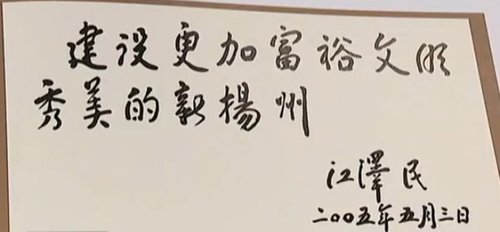 建设更加富裕文明
秀美的新揚州
江澤民
二〇〇五年五月三日